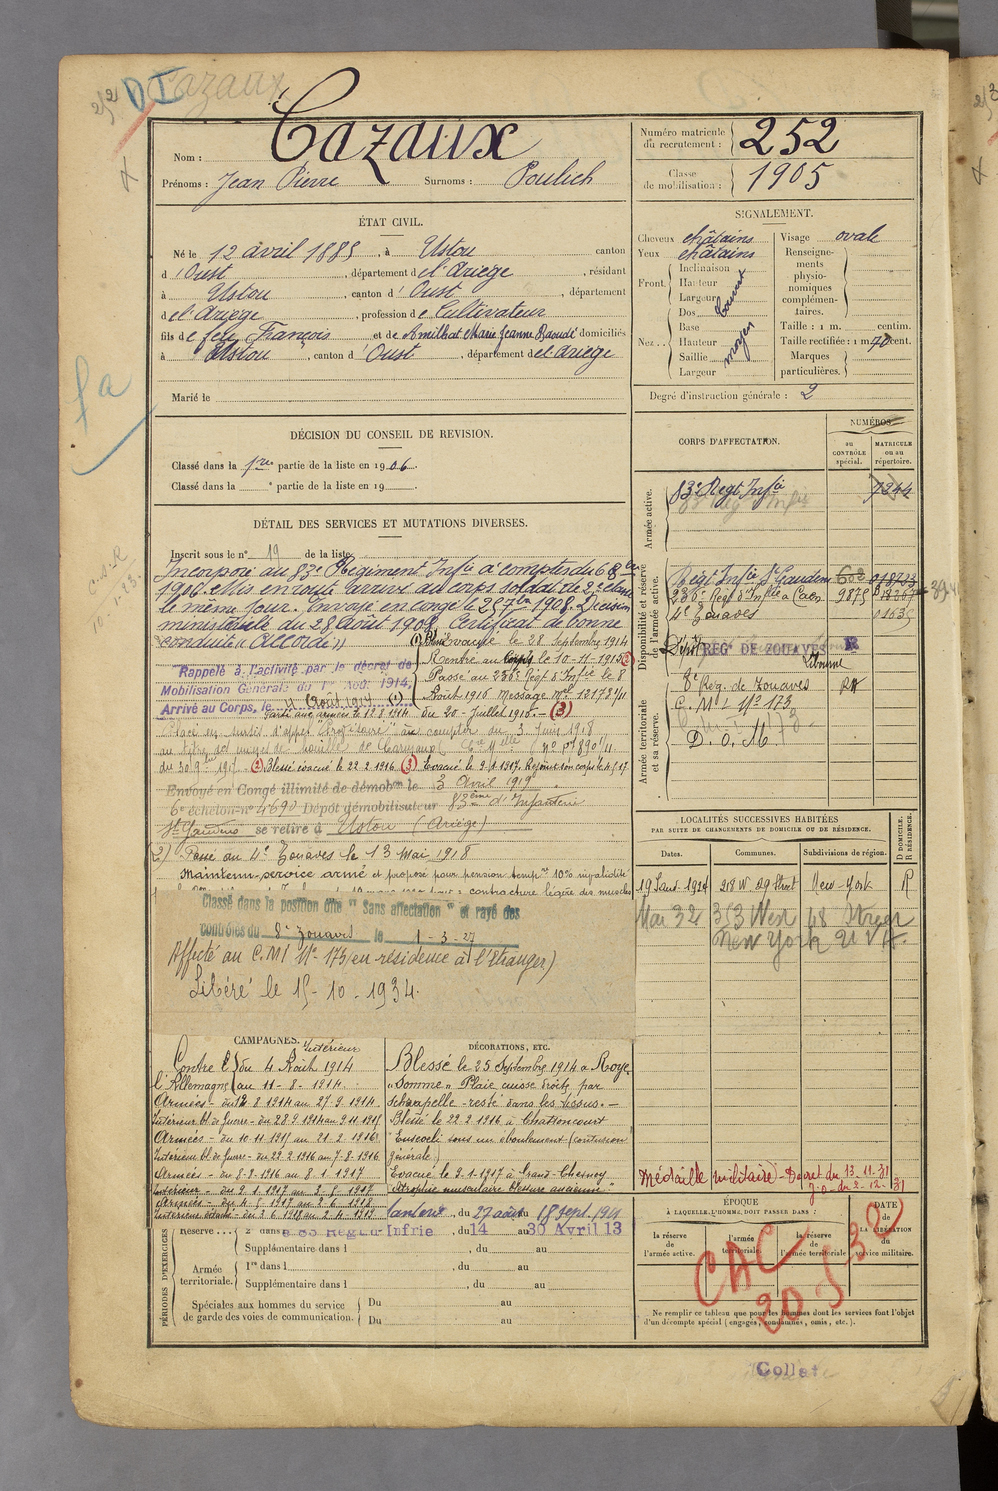 Cazaux
252 DI
Nom : Cazaux
Prénoms : Jean Pierre Surnoms : Poulich
Numéro matricule du recrutement : 252
Classe de mobilisation : 1905
ÉTAT CIVIL.
Né le 12 avril 1885, à Ustou canton
d'Oust, département de l'Ariège, résidant
à Ustou, canton d'Oust, département
de l'Ariège, profession de Cultivateur
fils de feu François et de Amilhat Marie Jeanne Baudé domiciliés
à Ustou, canton d'Oust, département de l'Ariège
Marié le
DÉCISION DU CONSEIL DE REVISION.
Classé dans la 1re partie de la liste en 1906.
Classé dans la e partie de la liste en 19
DÉTAIL DES SERVICES ET MUTATIONS DIVERSES.
Inscrit sous le n° 19 de la liste
Incorporé au 83e Régiment Infie à compter du 6 8bre
1906. Mis en route arrivé au corps soldat de 2e classe
le même jour. Envoyé en congé le 25 7bre 1908. Décision
ministérielle du 28 Août 1908. Certificat de bonne
conduite "Accordé"
Rappelé à l'activité par le décret de
Mobilisation Générale du 1er Août 1914,
Arrivé au Corps, le 4 Août 1914 (1)
(1) Blessé évacué le 28 Septembre 1914
Rentré au Corps le 10-11-1915 (2)
Passé au 236e Régt d'Infie le 8
Août 1916 Message Mel 12172/11
du 20-Juillet 1916.- (3)
Parti aux armées le 12 8 1914
Placé en sursis d'appel à compter du 3 Juin 1918
au titre des mines de houille de Carmaux
(2) Blessé évacué le 22 2 1916 (3) Evacué le 9-1-1917. Rejoint son corps le 4-5-17
Envoyé en Congé illimité de démobon le 3 Avril 1919
6e échelon n° 4690 Dépôt démobilisateur 83ème d'Infanterie
St Gaudens se retire à Ustou (Ariège)
(2) Passé au 4e Zouaves le 13 Mai 1918
Maintenu service armé et proposé pour pension tempre 10% invalidité
contracture légère des muscles
Classé dans la position dite "Sans affectation" et rayé des
contrôles du 8e Zouaves le 1-3-27
Affecté au C.M.I N° 173 (en résidence à l'étranger)
Libéré le 15-10-1934.
CAMPAGNES.
Intérieur
Contre l'Allemagne du 4 Août 1914
au 11-8-1914.
Armées - du 12 8 1914 au 27-9-1914
Intérieur bl. de guerre - du 28 9 1914 au 9 11 1915
Armées - du 10-11 1915 au 21-2-1916
Intérieur bl. de guerre - du 22 2 1916 au 7-8-1916
Armées - du 8-8-1916 au 8-1-1917
Intérieur - du 9-1-1917 au 3-5-1917
Armées - du 4-5-1917 au 2-6-1918
Intérieur détaché - du 3 6 1918 au 2-4-1919
DÉCORATIONS, ETC.
Blessé le 25 Septembre 1914 à Roye
"Somme" Plaie cuisse droite par
schrapelle - resté dans les tissus.-
Blessé le 22 2 1916 à Chattoncourt
Enseveli sous un éboulement (contusion
générale)
Evacué le 9-1-1917 à Grand-Chesnoy
"Atrophie musculaire blessure ancienne"
PÉRIODES D'EXERCICES
du 27 août au 18 sept. 1911
Réserve ... 2e dans Infrie, du 14 au 30 Avril 13
Supplémentaire dans l , du au
Armée territoriale.
1re dans l , du au
Supplémentaire dans l , du au
Spéciales aux hommes du service de garde des voies de communication.
Du au
Du au
SIGNALEMENT.
Cheveux châtains
Yeux châtains
Front. Inclinaison Hauteur Largeur couvert
Nez.. Dos Base Hauteur Saillie Largeur moyen
Visage ovale
Renseignements physionomiques complémentaires.
Taille : 1 m. centim.
Taille rectifiée : 1 m. 70 cent.
Marques particulières.
Degré d'instruction générale : 2
CORPS D'AFFECTATION.
NUMÉROS
au CONTRÔLE spécial.
MATRICULE ou au répertoire.
Armée active.
83e Regt Infie 7244
Disponibilité et réserve de l'armée active.
Regt Infie St Gaudens 602 018723
236e Regt d'Infie à Caen 9875
4e Zouaves 01635
Dépôt REG DE ZOUAVES R
Armée territoriale et sa réserve.
8e Reg. de Zouaves
C.M.I N° 173
D.O.M.
LOCALITÉS SUCCESSIVES HABITÉES
PAR SUITE DE CHANGEMENTS DE DOMICILE OU DE RÉSIDENCE.
Dates. Communes. Subdivisions de région. D DOMICILE. R RÉSIDENCE.
19 Sept. 1924 218 W. 49 Street New-York R
Mai 32 353 West 48 Street
New York U S A.
Médaille militaire - Décret du 13-11-31
J.O. du 2-12-31
ÉPOQUE
À LAQUELLE L'HOMME DOIT PASSER DANS :
la réserve de l'armée active.
l'armée territoriale.
la réserve de l'armée territoriale
DATE de LA LIBÉRATION du service militaire.
CAC
20 5 32
Ne remplir ce tableau que pour les hommes dont les services font l'objet
d'un décompte spécial (engagés, condamnés, omis, etc.).